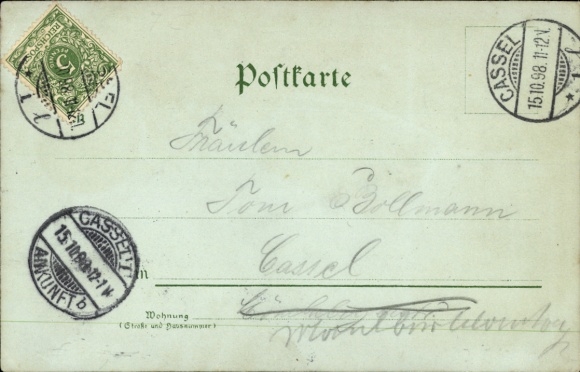 5
Postkarte
CASSEL
15.10.98.11-12V.
Fräulein
Toni Bollmann
Cassel
CASSEL 1
15.10.98.12-1N.
ANKUNFT b
in
Wohnung
(Straße und Hausnummer)